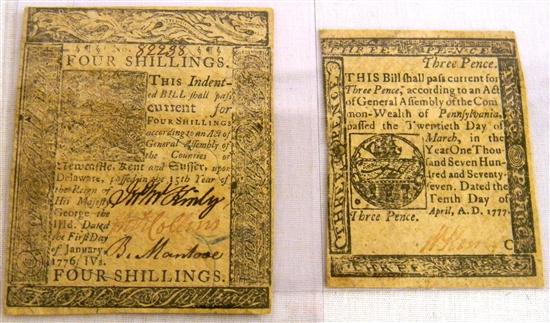 No. 82238
FOUR SHILLINGS.
THIS Indent-
ed BILL shall pass
current for
FOUR SHILLINGS
according to an Act of
General Assembly of
the Counties of
Newcastle, Kent and Sussex, upon
Delaware, passed in the 15th Year of
the Reign of
His Majesty
George the
IIId. Dated
the First Day
of January,
1776. IVs.
Collins
B. Manlove
FOUR SHILLINGS.
THREE PENCE
Three Pence.
THIS Bill shall pass current for
Three Pence, according to an Act
of General Assembly of the Com
mon-Wealth of Pennsylvania,
passed the Twentieth Day of
March, in the
Year One Thou
sand Seven Hun
dred and Seventy-
seven. Dated the
Tenth Day of
April, A. D. 1777.
THREE PENCE
Three Pence.
C
THREE PENCE